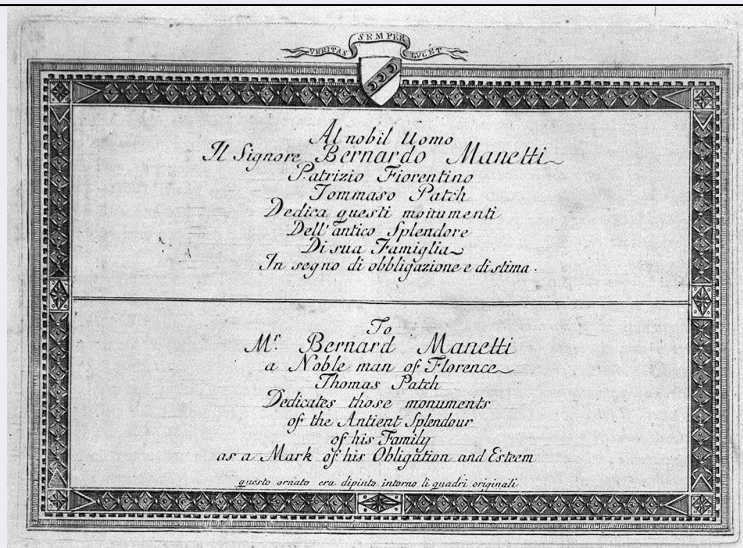 VERITAS SEMPER LUCET
Al nobil Uomo
Il Signore Bernardo Manetti
Patrizio Fiorentino
Tommaso Patch
Dedica questi monumenti
Dell' antico Splendore
Di sua Famiglia
In segno di obbligazione e di stima.
To
Mr. Bernard Manetti
a Noble man of Florence
Thomas Patch
Dedicates those monuments
of the Antient Splendour
of his Family
as a Mark of his Obligation and Esteem
questo ornato era dipinto intorno li quadri originali